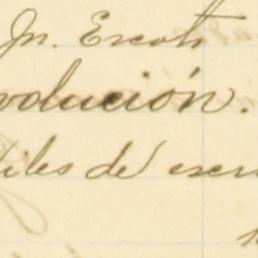 Jn. Escoto
volución.
tiles de escri